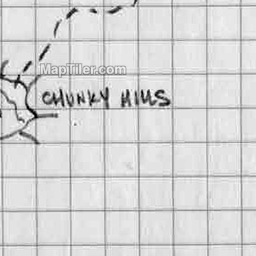 MapTiler.com
CHUNKY HILLS